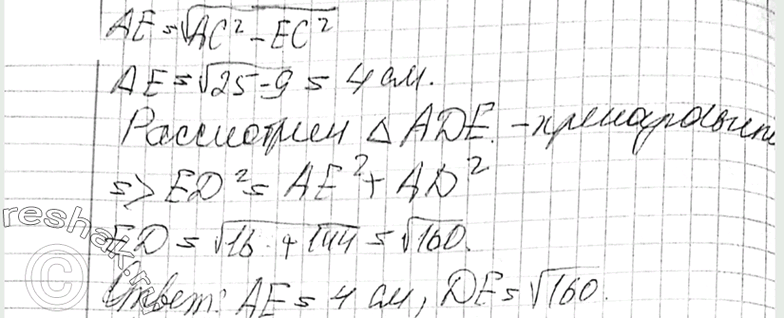 AE = √AC² - EC²
AE = √25-9 = 4 см.
Рассмотрим △ ADE. - прямоугольн
=> ED² = AE² + AD²
ED = √16 + 144 = √160.
Ответ: AE = 4 см, DE = √160.
reshak.ru
©